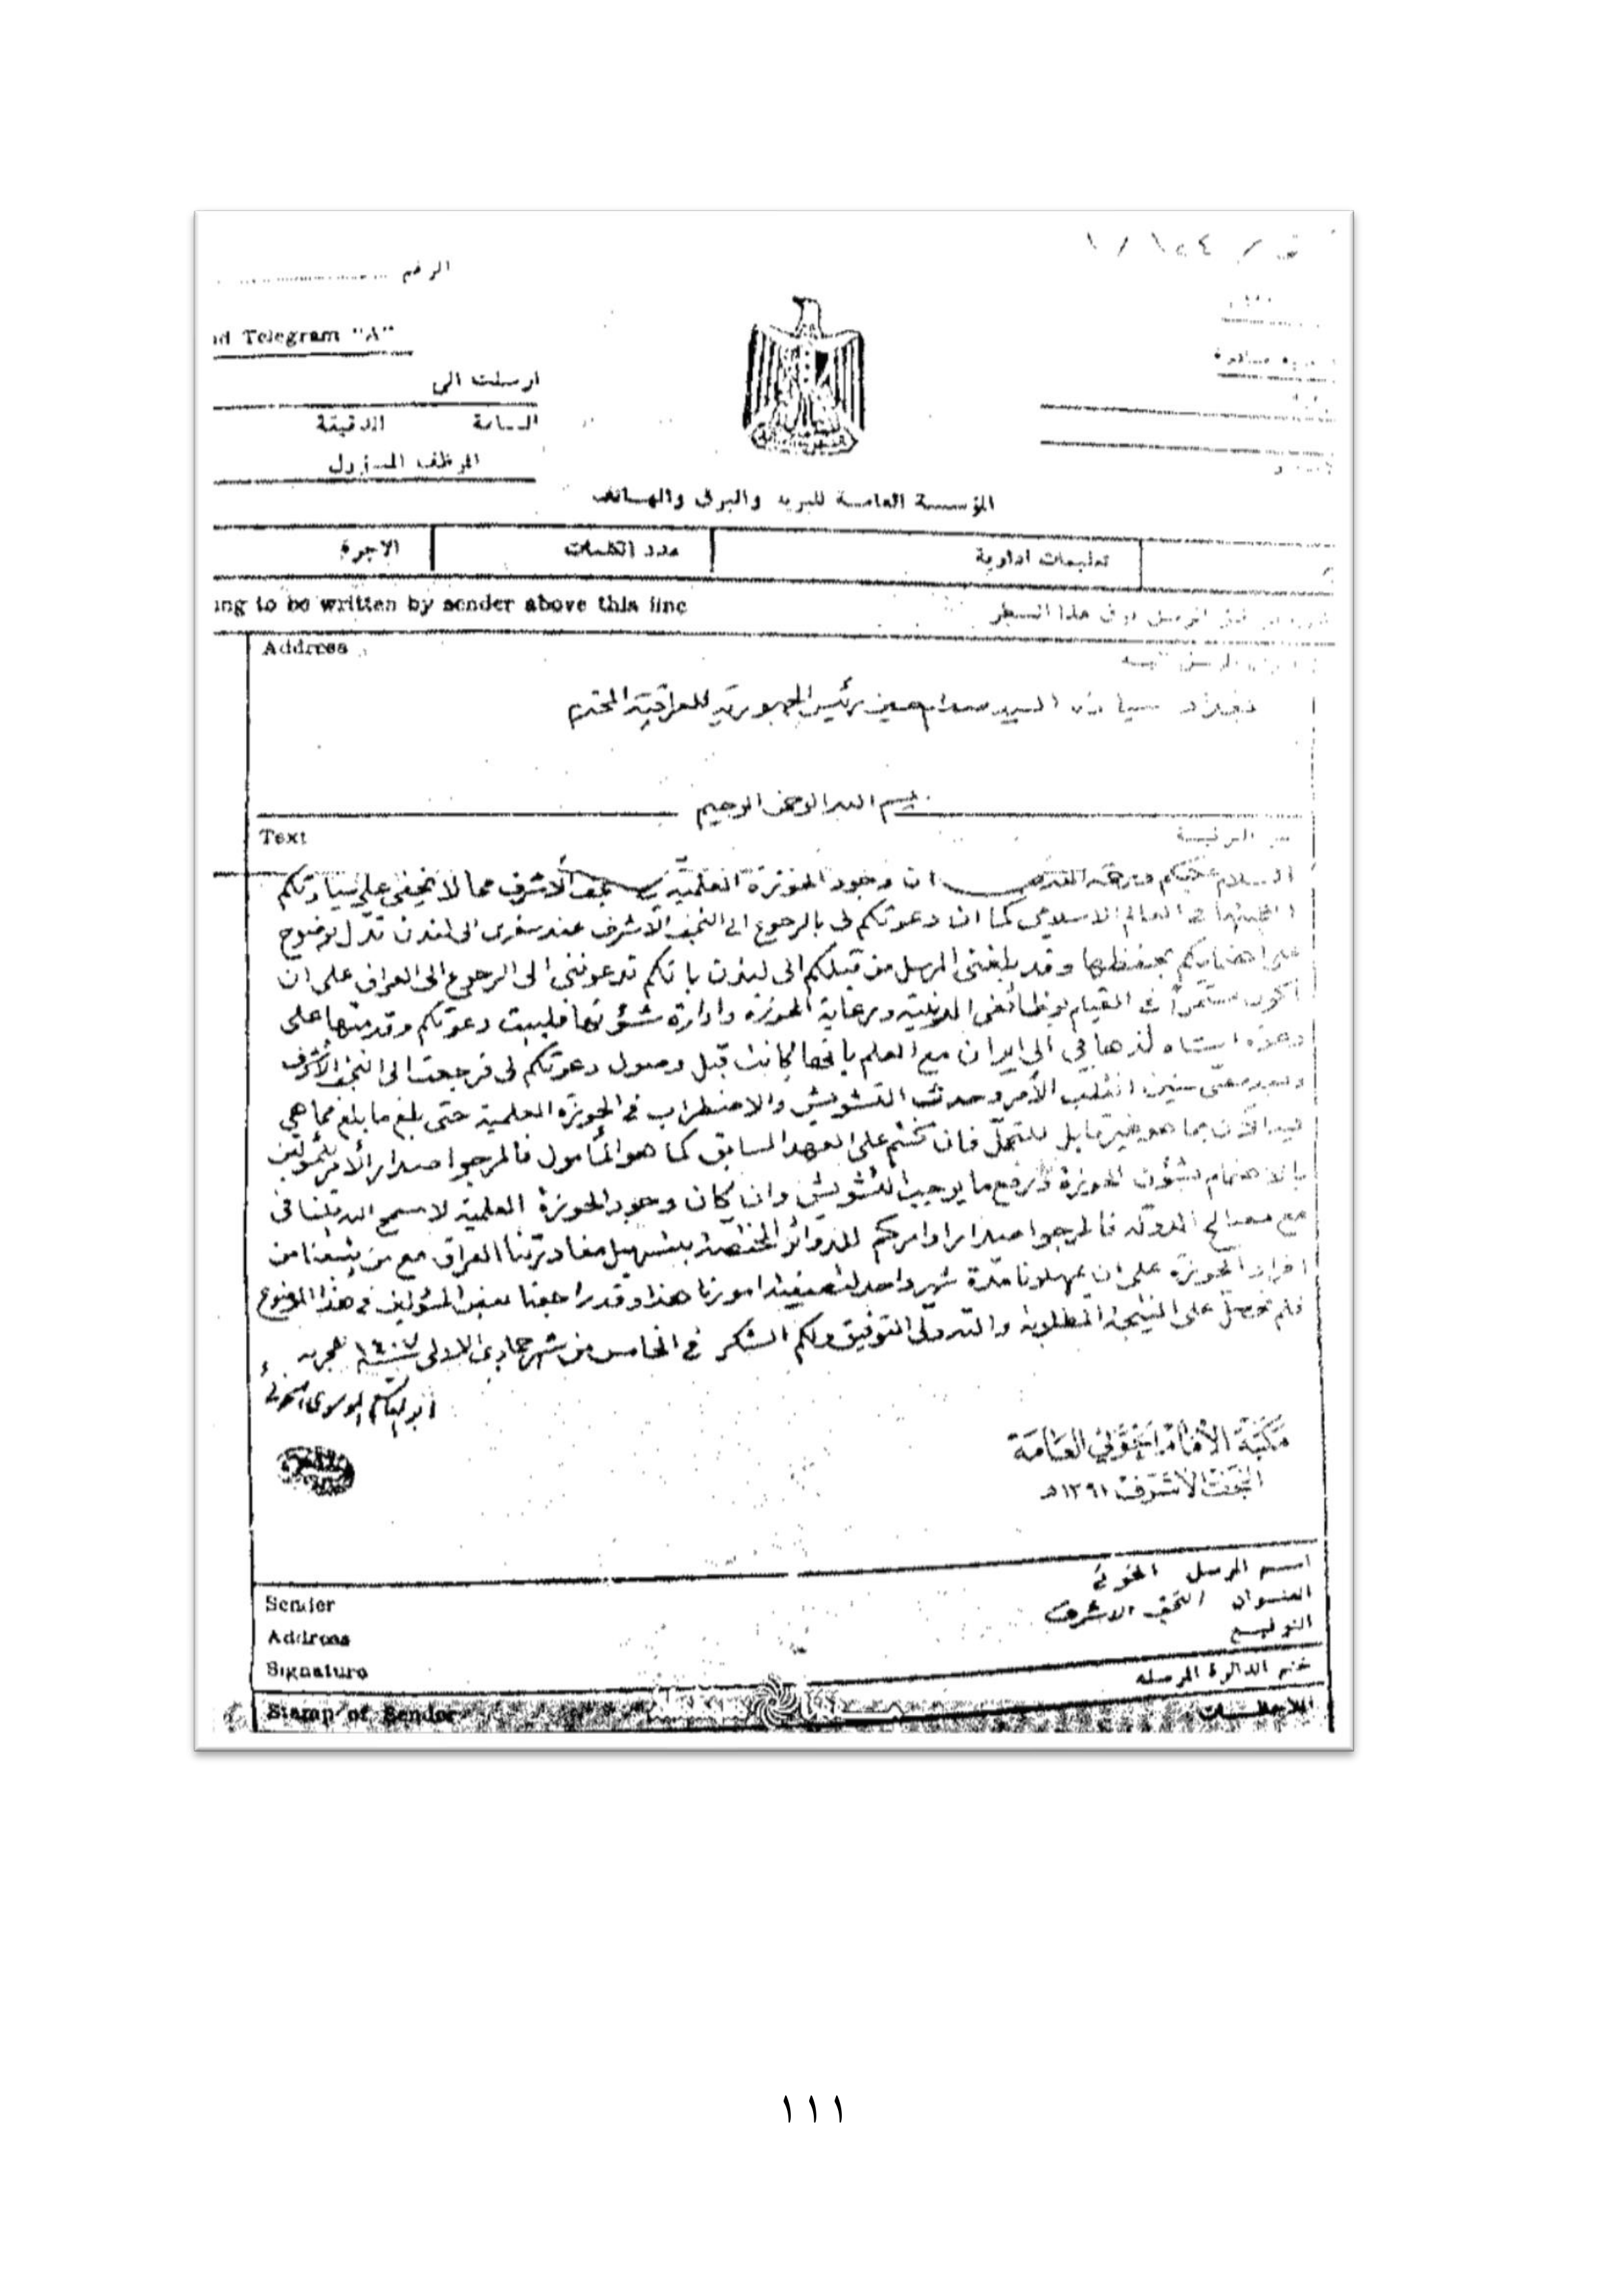 الرقم
Telegram "A"
ارسلت الى
الساعة الدقيقة
الموظف المسؤول
المؤسسة العامة للبريد والبرق والهاتف
تعليمات ادارية عدد الكلمات الاجرة
ing to be written by sender above this line
المرسل فوق هذا السطر
Address
سيادة السيد صدام حسين رئيس الجمهورية العراقية المحترم
بسم الله الرحمن الرحيم
Text
السلام عليكم ورحمة الله ان وجود الحوزة العلمية في النجف الأشرف مما لا يخفى على سيادتكم
اهميتها في العالم الاسلامي كما ان دعوتكم لى بالرجوع الى النجف الأشرف عند سفرى الى لندن تدل بوضوح
على اهتمامكم بحفظها وقد بلغنى المرسل من قبلكم الى لندن بانكم تدعوننى الى الرجوع الى العراق على ان
اكون مستمراً في القيام بوظائفى الدينية ورعاية الحوزة وادارة شؤونها فلبيت دعوتكم وقدمتها على
دعوة لذهابي الى ايران مع العلم بانها كانت قبل وصول دعوتكم لى فرجعت الى النجف الأشرف
وبعد سنين انقلب الأمر وحدث التشويش والاضطراب في الحوزة العلمية حتى بلغ ما بلغ مما هي
الآن بما هو غير قابل للتحمل فان كنتم على العهد السابق كما هو المأمول فالمرجو اصدار الأمر للمسؤولين
بالاهتمام بشؤون الحوزة ورفع ما يوجب التشويش وان كان وجود الحوزة العلمية لا سمح الله يتنافى
مع مصالح الدولة فالمرجو اصدار اوامركم للدوائر المختصة بتسهيل مغادرتنا العراق مع من يتبعنا من
افراد الحوزة على ان يمهلونا مدة شهر واحد لتصفية امورنا هذا وقد راجعنا بعض المسؤولين في هذا الموضوع
فلم نحصل على النتيجة المطلوبة والله ولى التوفيق ولكم الشكر في الخامس من شهر جمادى الاولى سنة ١٤٠٧ هجرية
ابو القاسم الموسوى الخوئي
مكتبة الإمام الخوئي العامة
النجف الأشرف ١٣٩١هـ
اسم المرسل الخوئي
Sender
العنوان النجف الاشرف
Address
التوقيع
Signature
ختم الدائرة المرسلة
Stamp of Sender
الملاحظات
١١١